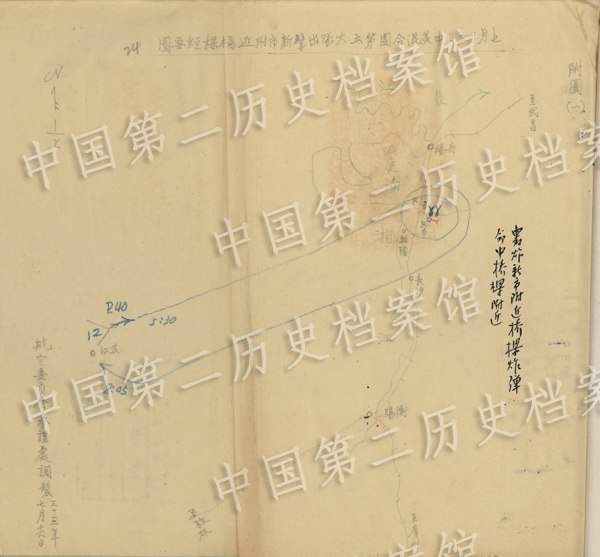 附圖(一)
七月 中美混合團第五大隊出擊新市附近橋樑經要圖
24
至武昌
長
岳陽
洞庭湖
湘
湘陰
長沙
轟炸新市附近橋樑炸彈
命中橋樑附近
P.40
12
5:30
芷江
8:05
衡陽
至桂林
航空委員 處調製
三十三年
七月 六日
中国第二历史档案馆
中国第二历史档案馆
中国第二历史档案馆
中国第二历史档案馆